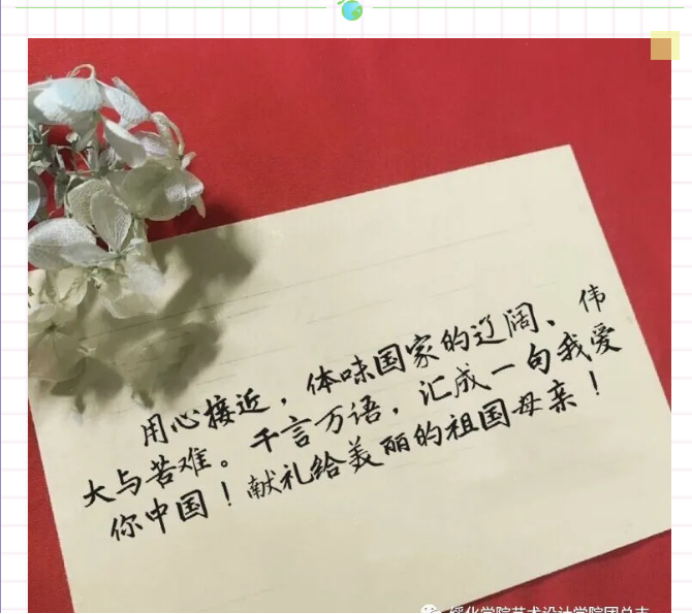 用心接近，体味国家的辽阔、伟
大与苦难。千言万语，汇成一句我爱
你中国！献礼给美丽的祖国母亲！
绥化学院艺术设计学院团总支